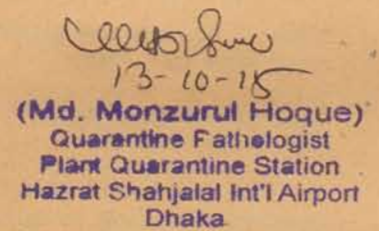 13-10-15
(Md. Monzurul Hoque)
Quarantine Pathologist
Plant Quarantine Station
Hazrat Shahjalal Int'l Airport
Dhaka